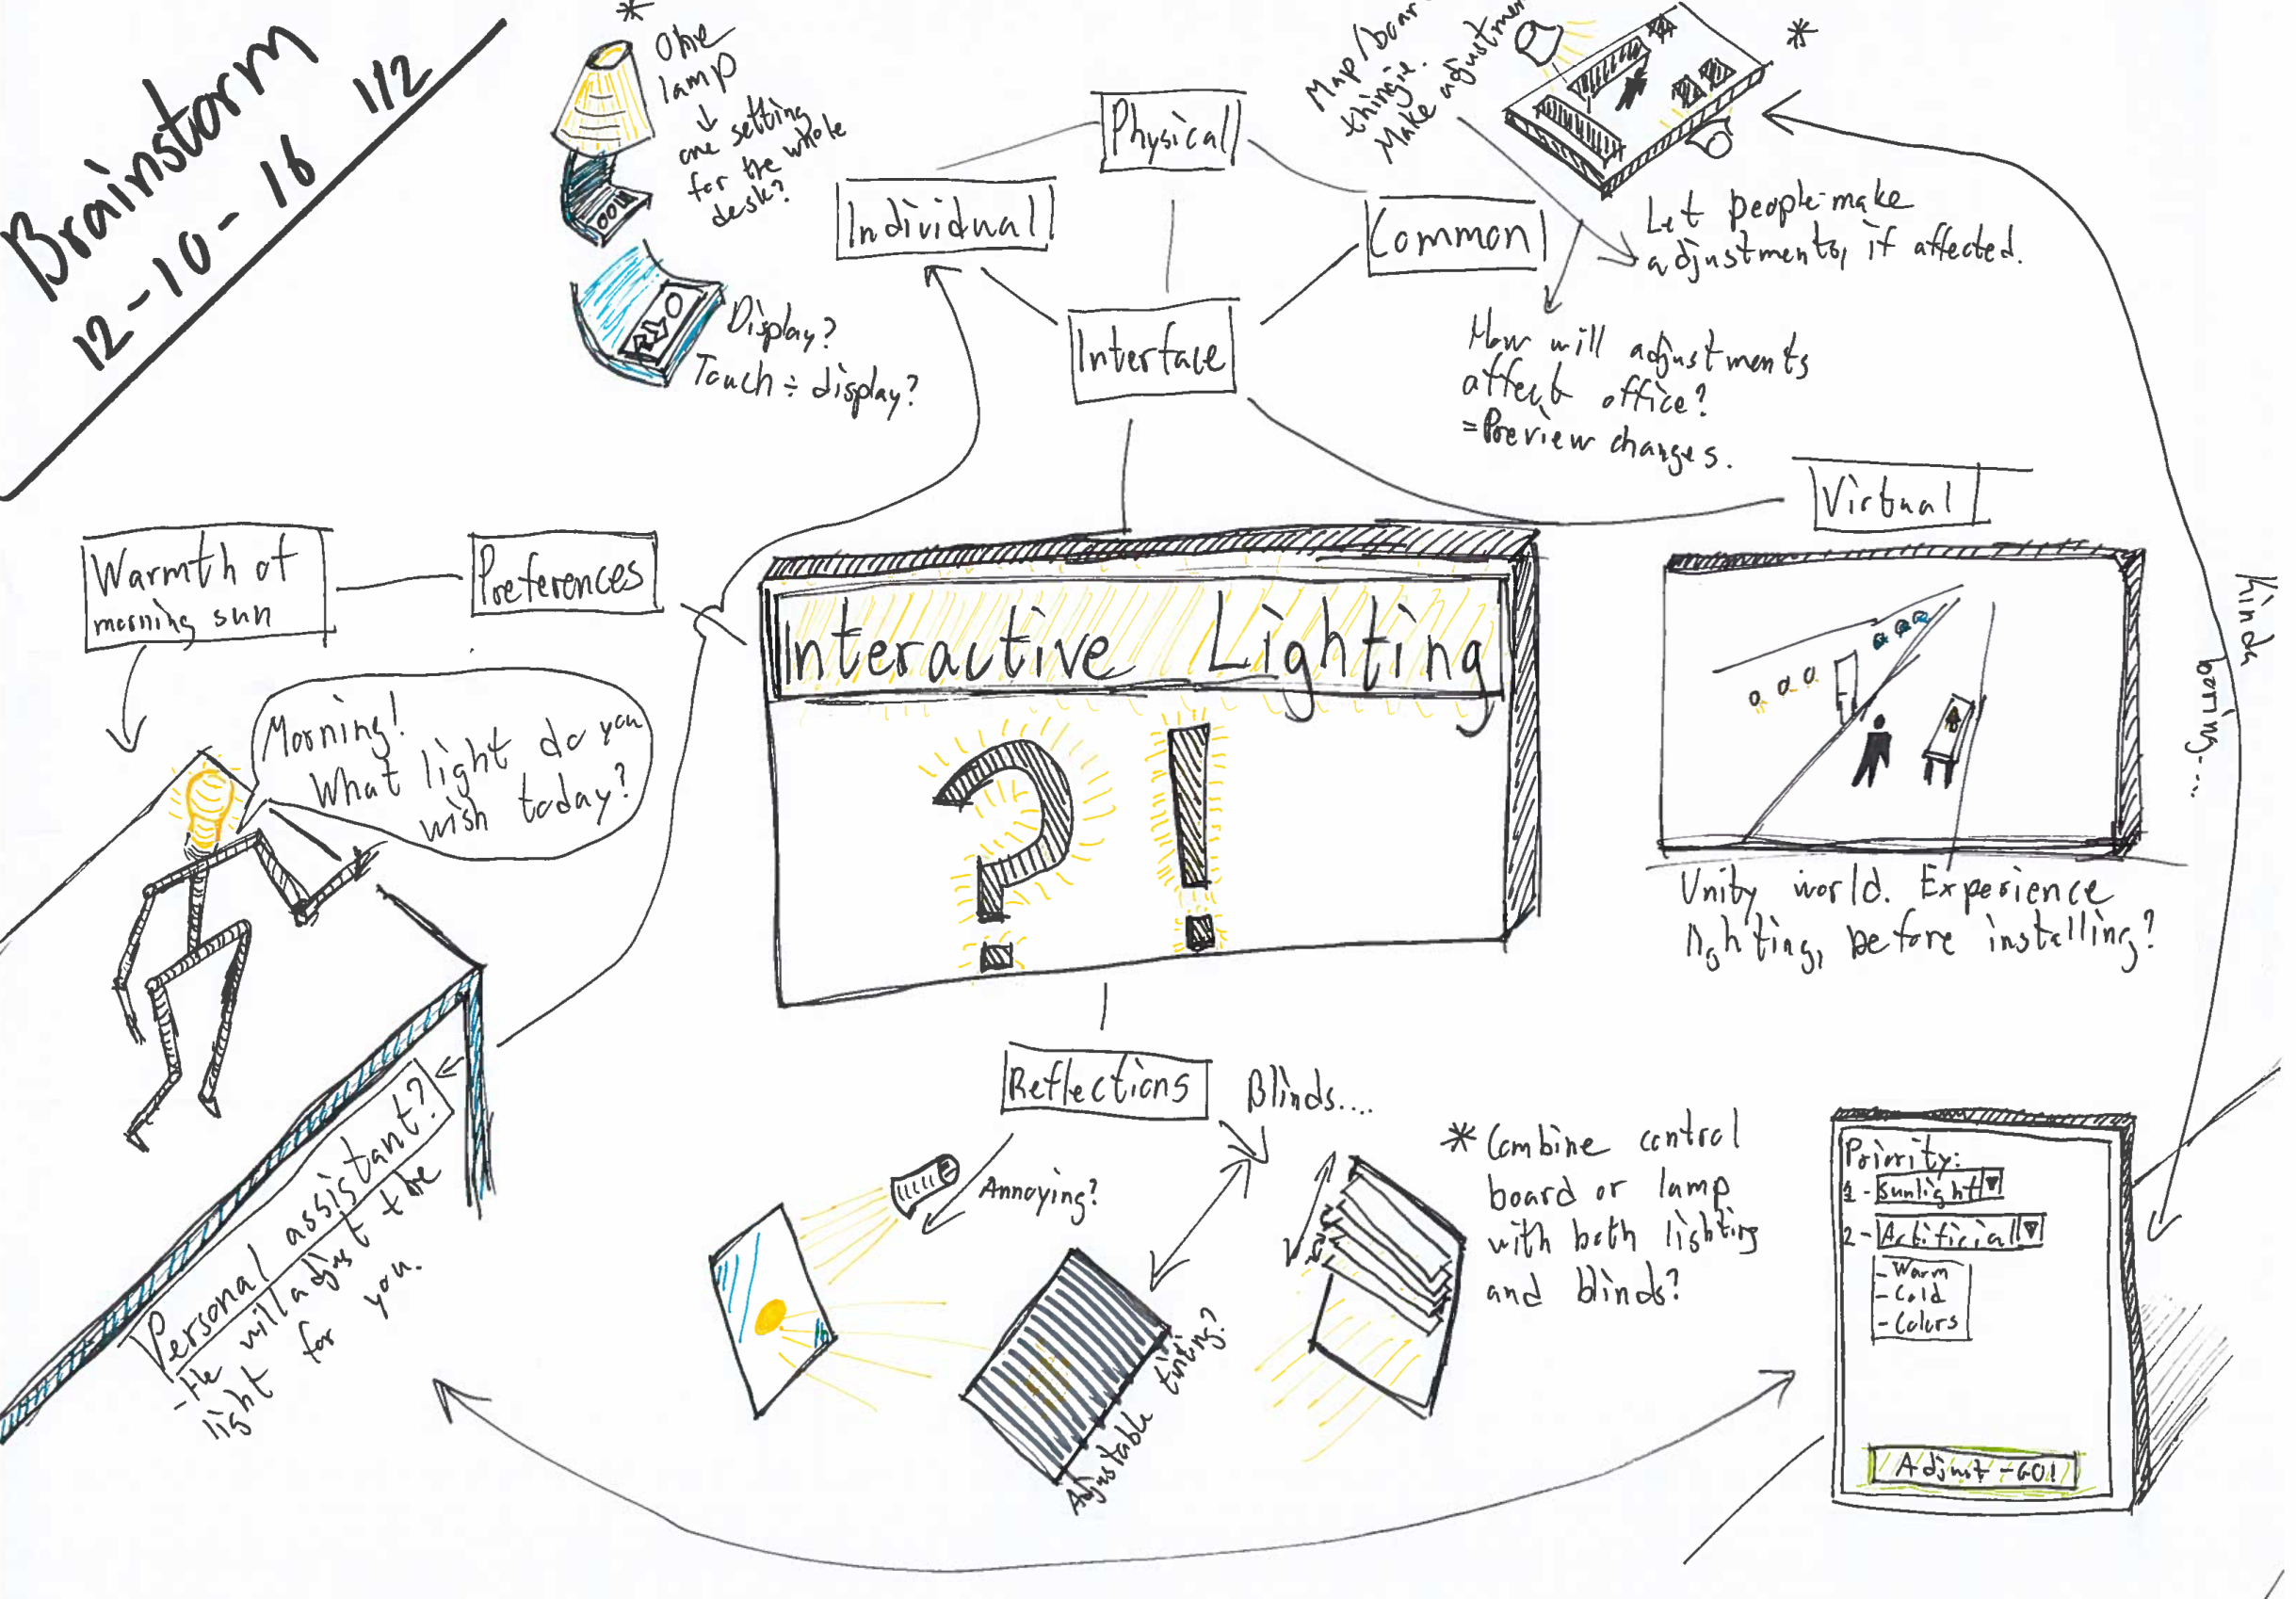 Brainstorm
12-10-16 1/2
*
One
lamp
↓
one setting
for the whole
desk?
Display?
Touch ÷ display?
Physical
Individual
Common
Interface
Map/boar
thingie.
Make adjustmen
*
Let people make
adjustments, if affected.
How will adjustments
affect office?
= Preview changes.
Virtual
Kinda
boring...
Warmth of
morning sun
Preferences
Interactive Lighting
?!
Morning!
What light do you
wish today?
Unity world. Experience
lighting, before installing?
Personal assistant?
- He will adjust the
light for you.
Reflections
Blinds....
Annoying?
Adjustable tinting?
* Combine control
board or lamp
with both lighting
and blinds?
Priority:
1 - Sunlight
2 - Artificial
- Warm
- Cold
- Colors
Adjust - GO!